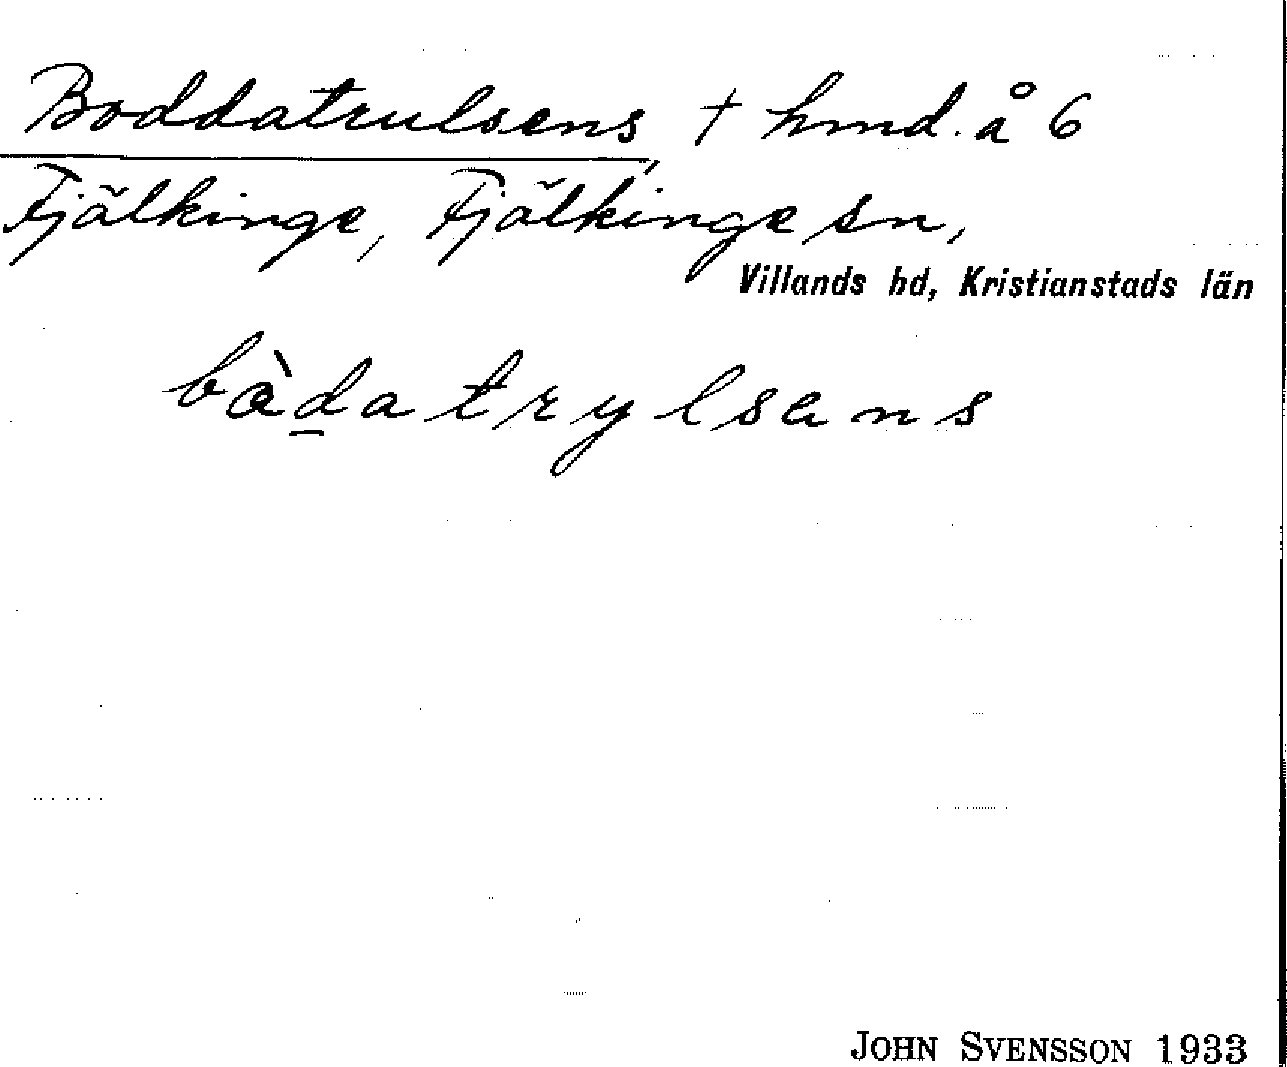 Boddatrulsens, † hmd. å 6
Fjälkinge, Fjälkinge sn,
Villands hd, Kristianstads län
bàd̲atrylsens
JOHN SVENSSON 1933